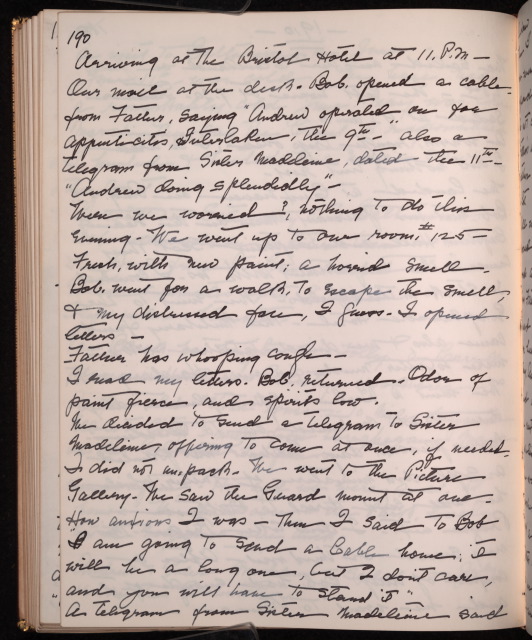 190
Arriving at the Bristol Hotel at 11. P.M -
Our mail at the desk - Bob. opened a cable
from Father, saying "Andrew operated on for
appendicitos, Interlaken, the 9th -" also a
telegram from Sister Madeleine, dated the 11th -
"Andrew doing splendidly" -
Were we worried?, nothing to do this
evening - We went up to our room, #125 -
Fresh, with new paint; a horrid smell -
Bob. went for a walk, to escape the smell,
& my distressed face, I guess - I opened
letters -
Father has whooping cough -
I read my letters. Bob. returned - Odor of
paint fierce, and spirits low.
We decided to send a telegram to Sister
Madeleine, offering to come at once, if needed.
I did not unpack - We went to the Picture
Gallery - We saw the Guard mount at one.
How anxious I was - Then I said to Bob
"I am going to send a Cable home; it
will be a long one, but I don't care,
and you will have to stand it"
A telegram from Sister Madeleine said